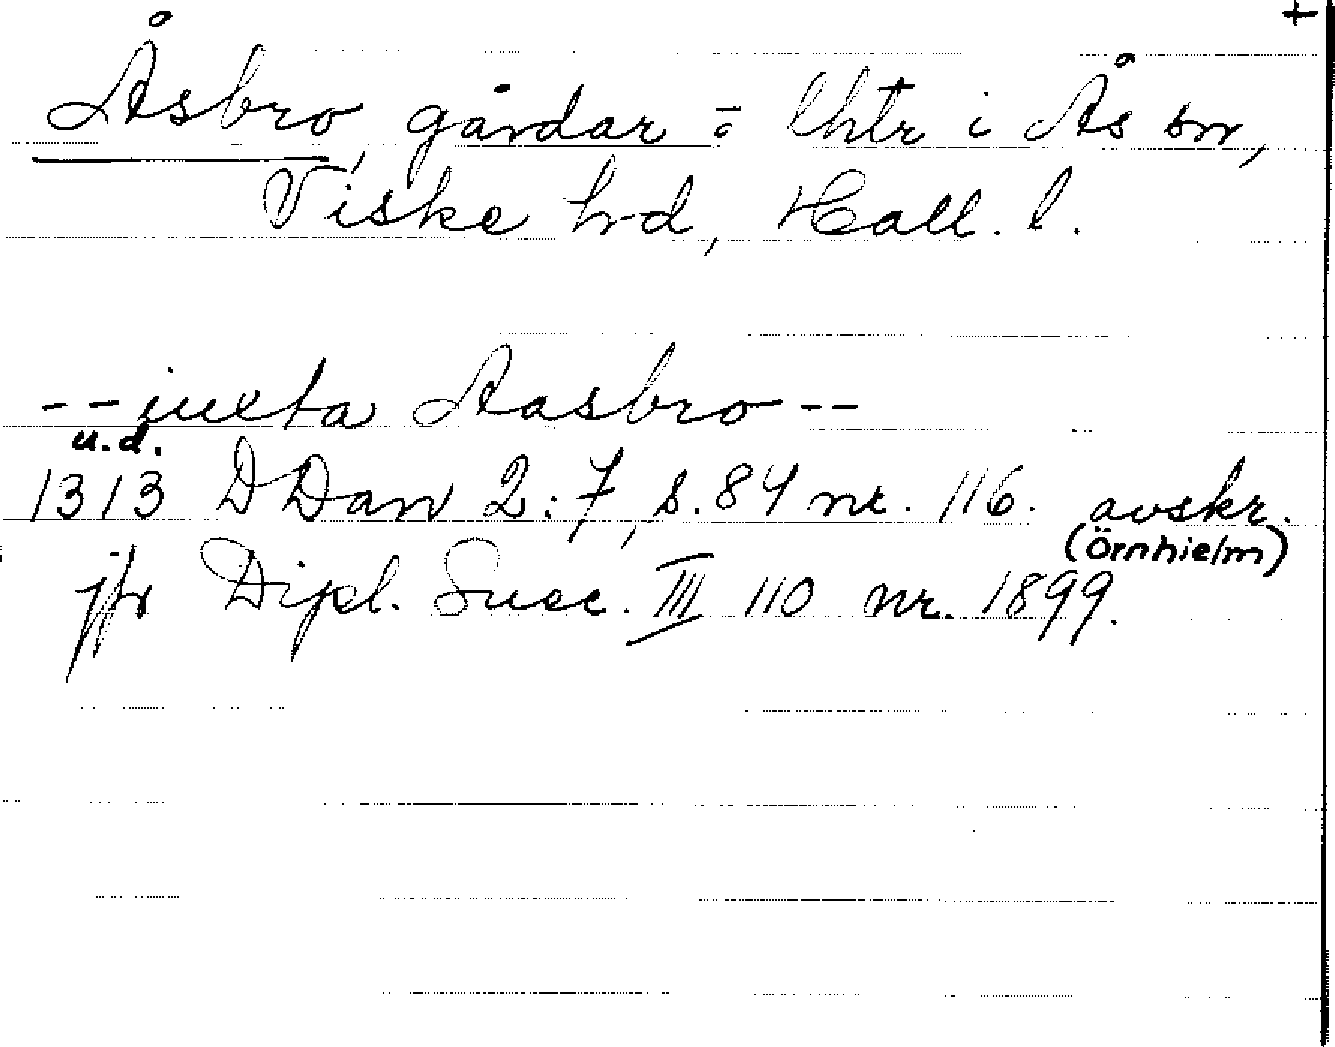 +
Åsbro, gårdar o lhtr i Ås sn,
Viske hrd, Hall. l.
-- iuxta Aasbro --
u.d.
1313 DDan 2:7, s. 84 nr. 116. avskr.
(Örnhielm)
jfr Dipl. Suec. III 110 nr. 1899.